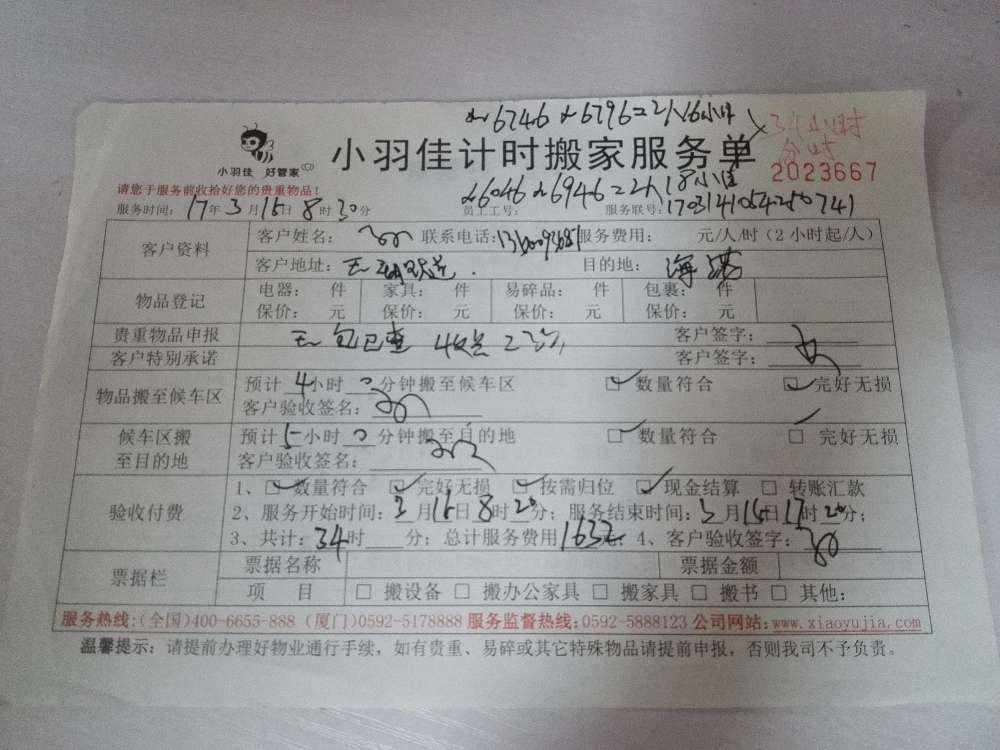 小羽佳 好管家
小羽佳计时搬家服务单
2023667
请您于服务前收拾好您的贵重物品！
服务时间：17年3月15日8时30分 员工工号： 服务联号：
客户资料 客户姓名： 联系电话： 服务费用： 元/人/时（2小时起/人）
客户地址： 目的地：
物品登记 电器： 件 家具： 件 易碎品： 件 包裹： 件
保价： 元 保价： 元 保价： 元 保价： 元
贵重物品申报 客户签字：
客户特别承诺 客户签字：
物品搬至候车区 预计4小时 分钟搬至候车区 □数量符合 □完好无损
客户验收签名：
候车区搬至目的地 预计5小时 分钟搬至目的地 □数量符合 □完好无损
客户验收签名：
验收付费 1、□数量符合 □完好无损 □按需归位 □现金结算 □转账汇款
2、服务开始时间：3月15日8时20分；服务结束时间：3月15日17时20分；
3、共计：34时 分；总计服务费用1632元；4、客户验收签字：
票据栏 票据名称 票据金额
项 目 □搬设备 □搬办公家具 □搬家具 □搬书 □其他：
服务热线：(全国)400-6655-888 (厦门)0592-5178888 服务监督热线：0592-5888123 公司网站：www.xiaoyujia.com
温馨提示：请提前办理好物业通行手续，如有贵重、易碎或其它特殊物品请提前申报，否则我司不予负责。